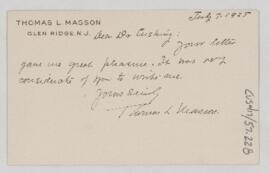 THOMAS L. MASSON
GLEN RIDGE, N.J.
July 7. 1925
Dear Dr Cushing:
Your letter
gave me great pleasure. It was very
considerate of you to write me.
Yours Sincerely
Thomas L Masson.
CUSH1/57-22B